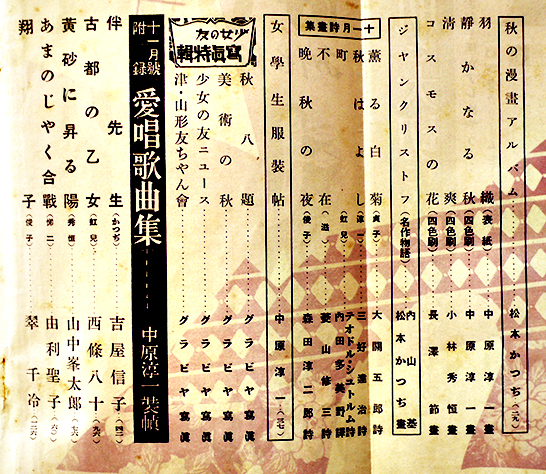 秋の漫畫アルバム……松本かつぢ(二元)
羽織(表紙)……中原淳一畫
靜かなる秋(四色刷)……中原淳一畫
清爽(四色刷)……小林秀恒畫
コスモスの花(四色刷)……長澤節畫
ジャンクリストフ(名作物語) 内山基 松本かつぢ畫
十一月詩畫集
薫る白菊(寅子)……大關五郎詩
秋はよし(淳一)……三好達治詩
町(虹兒)……テオドル・シュトルム詩 内田多美野譯
不在(滋)……菱山修三詩
晩秋の夜(俊子)……森田淳二郎詩
女學生服裝帖……中原淳一
少女の友 寫眞特輯
秋八題……グラビヤ寫眞
美術の秋……グラビヤ寫眞
少女の友ニュース……グラビヤ寫眞
津・山形友ちゃん會……グラビヤ寫眞
十一月號附録 愛唱歌曲集……中原淳一裝幀
伴先生(かつぢ)……吉屋信子
古都の乙女(虹兒)……西條八十
黄砂に昇る陽(秀恒)……山中峯太郎
あまのじやく合戰(悌二)……由利聖子
翔子(俊子)……翠千冷